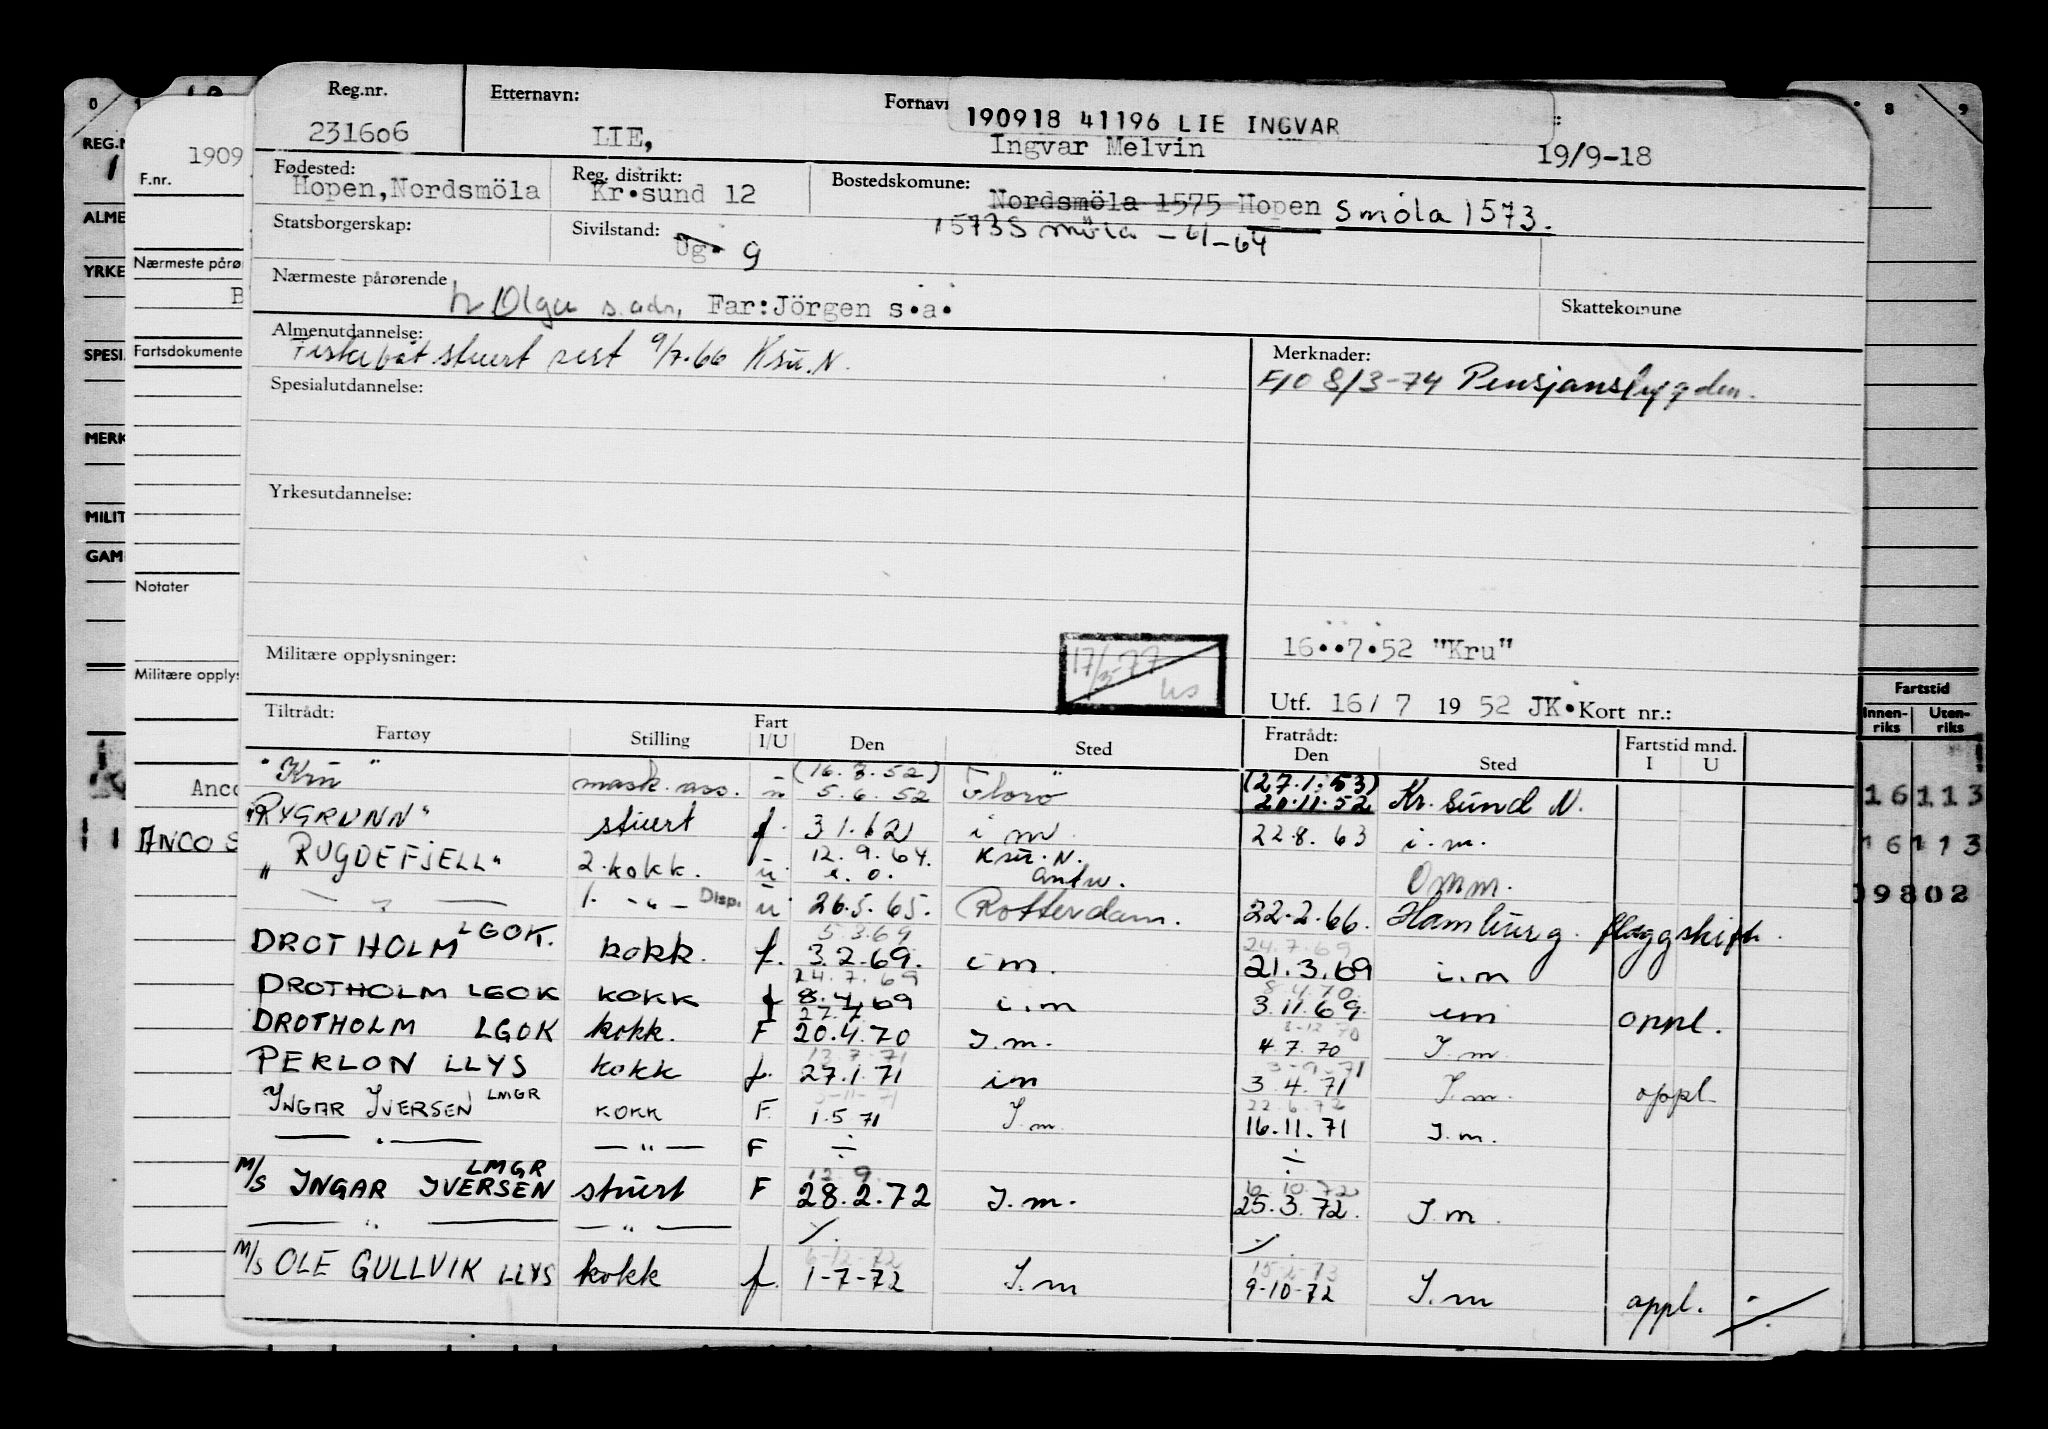 Reg.nr. Etternavn: Fornavn 190918 41196 LIE INGVAR
231606 LIE, Ingvar Melvin 19/9-18
Fødested: Reg. distrikt: Bostedskomune:
Hopen, Nordsmöla Kr.sund 12 Nordsmöla 1575 Hopen Smöla 1573.
Statsborgerskap: Sivilstand: Ug. g 1573 Smöla - 61-64
Nærmeste pårørende Skattekomune
h Olga s.adr, Far: Jörgen s.a.
Almenutdannelse: Merknader:
Fiskebåt stuert sert 9/7.66 Ksu.N. F/O 8/3-74 Pensjonstrygden.
Spesialutdannelse:
Yrkesutdannelse:
16..7.52 "Kru"
Militære opplysninger: 17/3-77
Utf. 16/ 7 19 52 JK. Kort nr.:
Tiltrådt: Fart Fratrådt: Fartstid mnd.
Fartøy Stilling I/U Den Sted Den Sted I U
"Kru" mask. ass. u (16.7.52) 5.6.52 Florö (27.1.53) 20.11.52 Kr. Sund N.
"RYGRUNN" stuert f. 31.62 i m. 22.8.63 i.m.
"RUGDEFJELL" 2. kokk. u 12.9.64. Ksu.N. Antw. Omm.
— " — 1. - " - Disp. u 26.5.65. Rotterdam. 22.2.66. Hamburg. flaggskift.
DROTHOLM LGOK. kokk. f. 5.3.69 3.2.69. i m. 24.7.69 21.3.69 i.m
DROTHOLM LGOK KOKK f 24.7.69 8.4.69 i.m 8.4.70 3.11.69. im oppl.
DROTHOLM LGOK kokk. F 20.4.70 I.m. 8-12 70 4 7.70 I.m
PERLON LLYS kokk f. 13.7.71 27.1.71 im 3.4.71 I.m. oppl.
INGAR IVERSEN LMGR KOKK F. 1.5 71 I.m. 22.6.72 16.11.71 I.m.
— " — — " — F ÷ ÷
M/S INGAR IVERSEN LMGR stuert F 12 9. 28.2.72 I.m. 6 10.72 25.3.72. I.m.
— " — — " — ./. ./.
M/S OLE GULLVIK LLYS kokk f. 6-12-72 1-7-72 I.m 15-2-73 9-10-72 I.m oppl. ./.
0 1
REG.N
1
ALME
YRKE
SPESI
MERK
MILIT
GAM
1909
F.nr.
Nærmeste pårø
B
Fartsdokumente
Notater
Militære opply
Anco
ANCO S
8 9
Fartstid
Innen-riks Uten-riks
16 113
16 113
09802